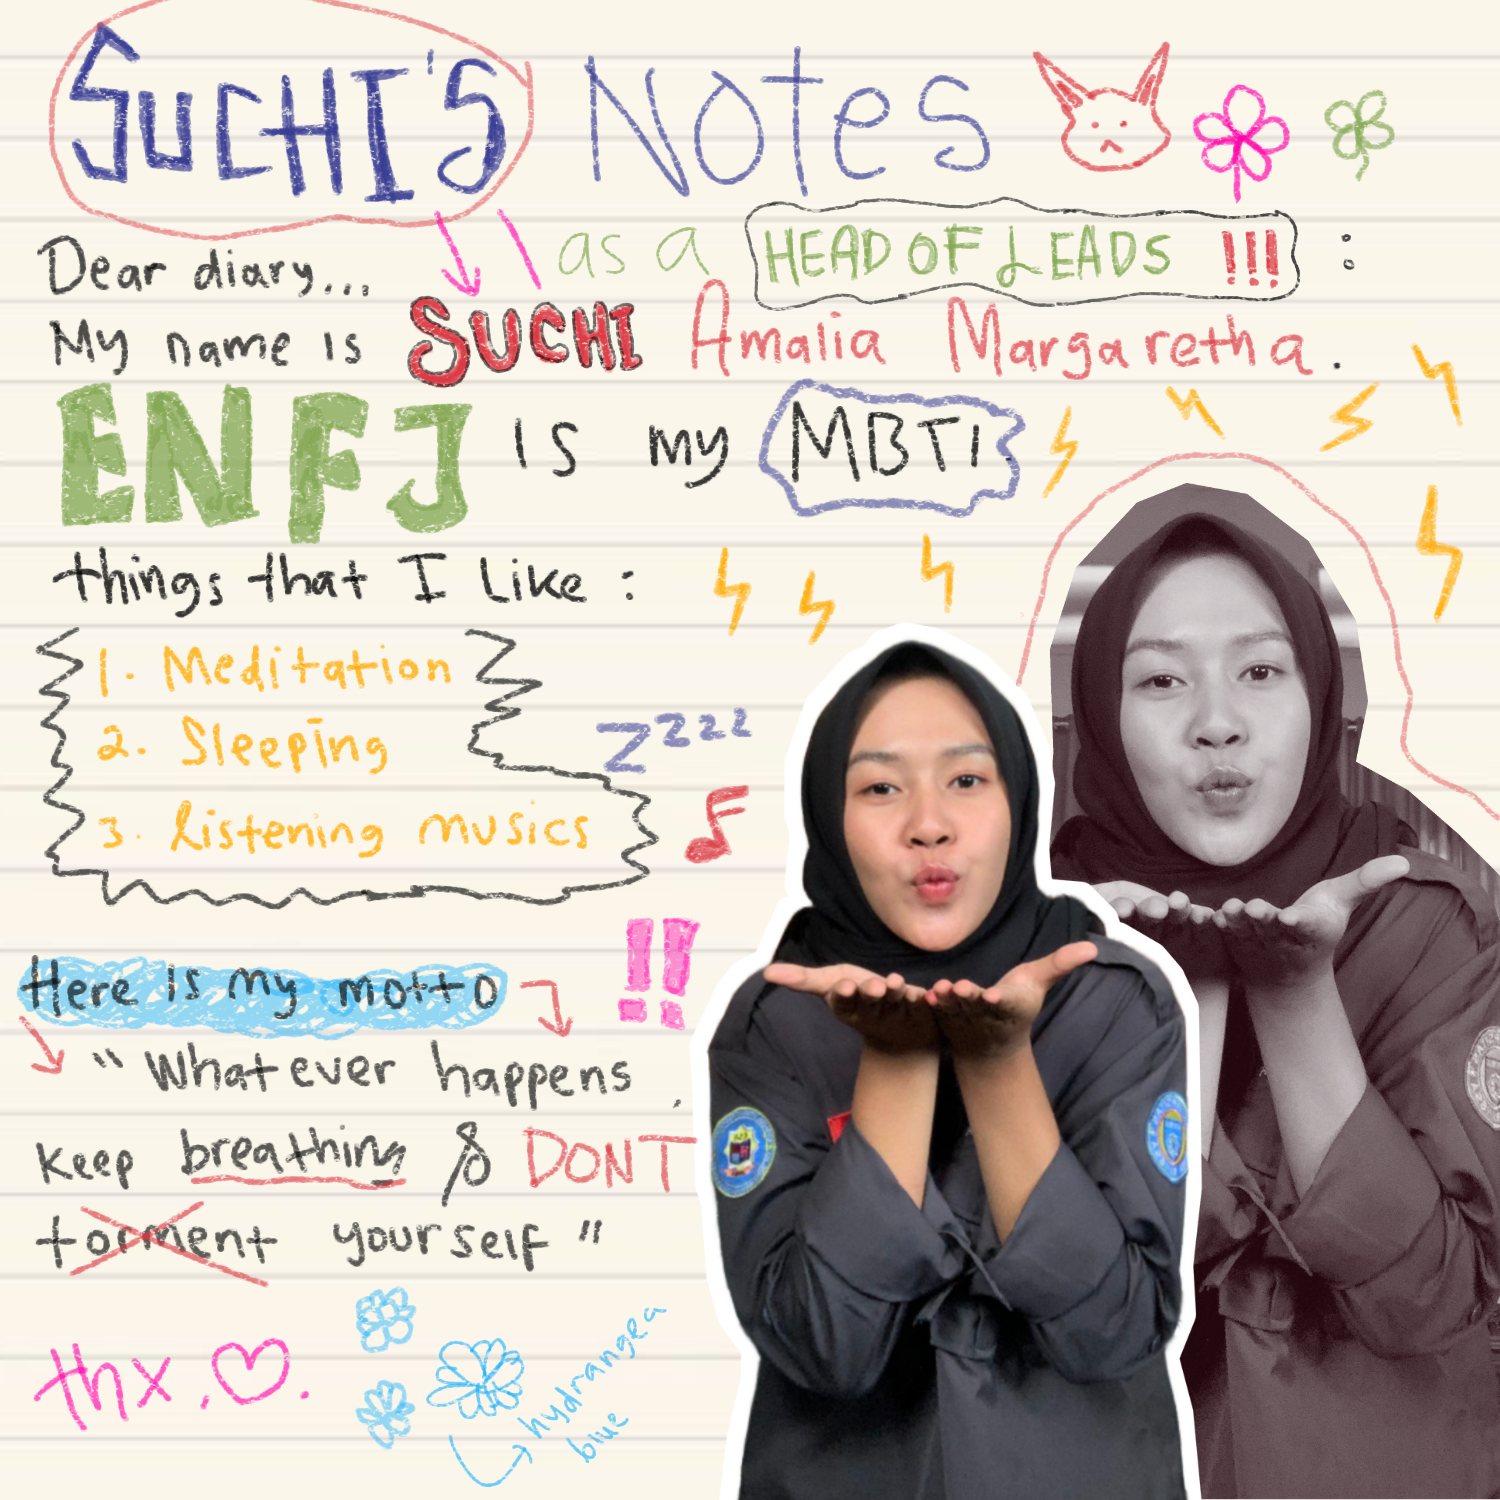 SUCHI'S Notes
as a HEAD OF LEADS !!! :
Dear diary...
My name is SUCHI Amalia Margaretha.
ENFJ is my MBTI
things that I like :
1. Meditation
2. Sleeping
zzzz
3. listening musics
Here is my motto !!
" Whatever happens,
keep breathing & DONT
torment yourself "
thx,
hydrangea
blue